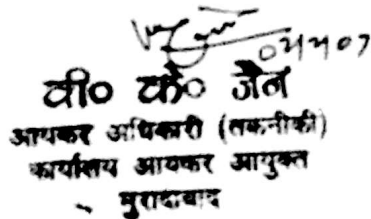 वी० के० जैन
आयकर अधिकारी (तकनीकी)
कार्यालय आयकर आयुक्त
मुरादाबाद